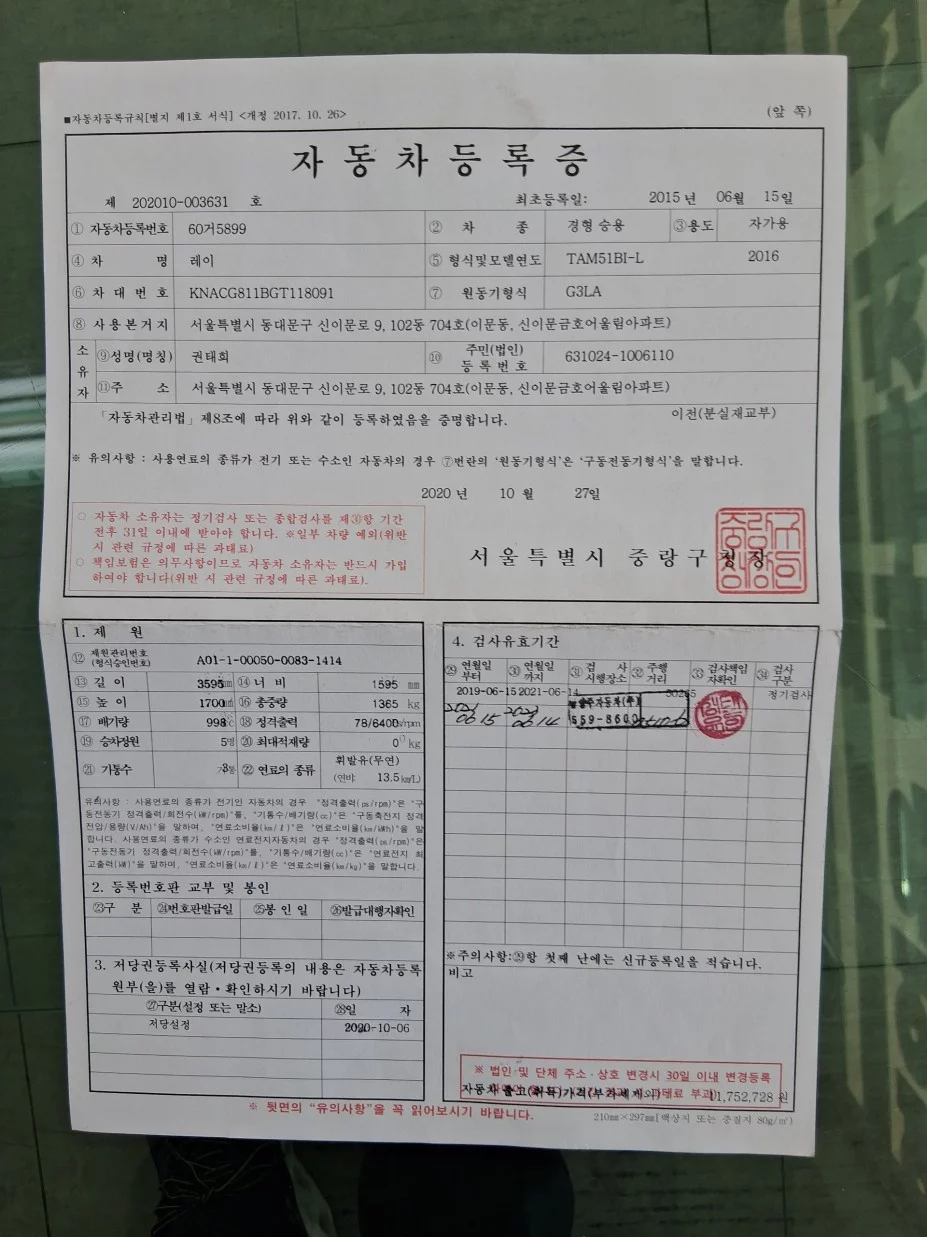 ■자동차등록규칙[별지 제1호 서식] <개정 2017. 10. 26> (앞 쪽)
자동차등록증
제 202010-003631 호 최초등록일: 2015년 06월 15일
① 자동차등록번호 60거5899 ② 차 종 경형 승용 ③용도 자가용
④ 차 명 레이 ⑤ 형식및모델연도 TAM51BI-L 2016
⑥ 차 대 번 호 KNACG811BGT118091 ⑦ 원동기형식 G3LA
⑧ 사 용 본 거 지 서울특별시 동대문구 신이문로 9, 102동 704호(이문동, 신이문금호어울림아파트)
소유자 ⑨성명(명칭) 권태희 ⑩ 주민(법인)등록번호 631024-1006110
⑪주 소 서울특별시 동대문구 신이문로 9, 102동 704호(이문동, 신이문금호어울림아파트)
「자동차관리법」 제8조에 따라 위와 같이 등록하였음을 증명합니다. 이전(분실재교부)
※ 유의사항 : 사용연료의 종류가 전기 또는 수소인 자동차의 경우 ⑦번란의 '원동기형식'은 '구동전동기형식'을 말합니다.
2020 년 10 월 27일
○ 자동차 소유자는 정기검사 또는 종합검사를 제㉚항 기간
전후 31일 이내에 받아야 합니다. ※일부 차량 예외(위반
시 관련 규정에 따른 과태료)
○ 책임보험은 의무사항이므로 자동차 소유자는 반드시 가입
하여야 합니다(위반 시 관련 규정에 따른 과태료).
서울특별시 중랑구청장
1. 제 원
⑫ 제원관리번호(형식승인번호) A01-1-00050-0083-1414
⑬ 길 이 3595mm ⑭ 너 비 1595 mm
⑮ 높 이 1700mm ⑯ 총중량 1365 kg
⑰ 배기량 998cc ⑱ 정격출력 78/6400ps/rpm
⑲ 승차정원 5명 ⑳ 최대적재량 0 kg
㉑ 가통수 3통 ㉒ 연료의 종류 휘발유(무연)
(연비 13.5 km/L)
유의사항 : 사용연료의 종류가 전기인 자동차의 경우 "정격출력(ps/rpm)"은 "구
동전동기 정격출력/회전수(kW/rpm)"를, "기통수/배기량(cc)"은 "구동축전지 정격
전압/용량(V/Ah)"을 말하며, "연료소비율(km/ℓ)"은 "연료소비율(km/kWh)"을 말
합니다. 사용연료의 종류가 수소인 연료전지자동차의 경우 "정격출력(ps/rpm)"은
"구동전동기 정격출력/회전수(kW/rpm)"를, "기통수/배기량(cc)"은 "연료전지 최
고출력(kW)"을 말하며, "연료소비율(km/ℓ)"은 "연료소비율(km/kg)"을 말합니다.
2. 등록번호판 교부 및 봉인
㉓구 분 ㉔번호판발급일 ㉕봉 인 일 ㉖발급대행자확인
3. 저당권등록사실(저당권등록의 내용은 자동차등록
원부(을)를 열람·확인하시기 바랍니다)
㉗구분(설정 또는 말소) ㉘일 자
저당설정 2020-10-06
4. 검사유효기간
㉙ 연월일부터 ㉚ 연월일까지 ㉛ 검 사 시행장소 ㉜ 주행거리 ㉝ 검사책임자확인 ㉞ 검사구분
2019-06-15 2021-06-14 30265 정기검사
559-8600
※주의사항:㉙항 첫째 난에는 신규등록일을 적습니다.
비고
※ 법인 및 단체 주소·상호 변경시 30일 이내 변경등록
자동차 출고(취득)가격(부가세제외) 11,752,728 원
※ 뒷면의 "유의사항"을 꼭 읽어보시기 바랍니다.
210㎜×297㎜[백상지 또는 중질지 80g/㎡]